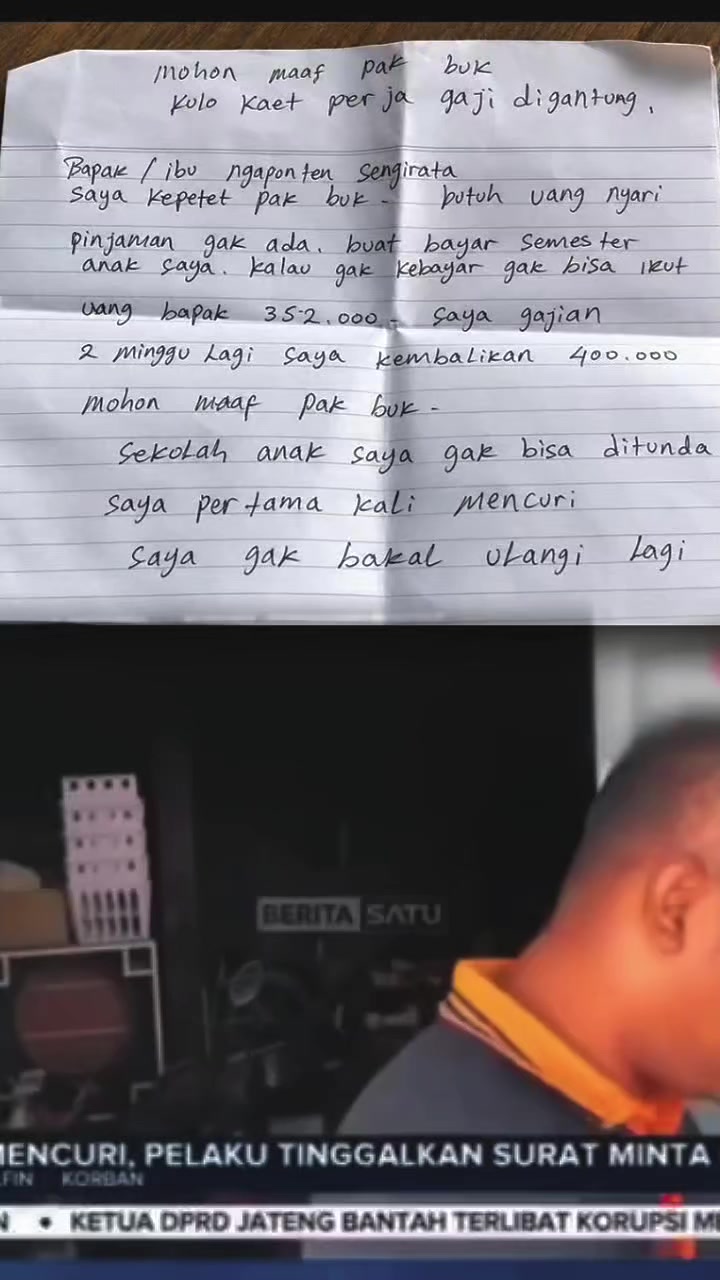 mohon maaf pak buk
Kulo kaet perja gaji digantung.
Bapak / ibu ngaponten sengirata
saya kepetet pak buk - butuh uang nyari
pinjaman gak ada. buat bayar semester
anak saya. kalau gak kebayar gak bisa ikut
uang bapak 352.000 - saya gajian
2 minggu lagi saya kembalikan 400.000
mohon maaf pak buk -
sekolah anak saya gak bisa ditunda
saya pertama kali mencuri
saya gak bakal ulangi lagi
BERITA SATU
MENCURI, PELAKU TINGGALKAN SURAT MINTA
FIN KORBAN
N • KETUA DPRD JATENG BANTAH TERLIBAT KORUPSI M